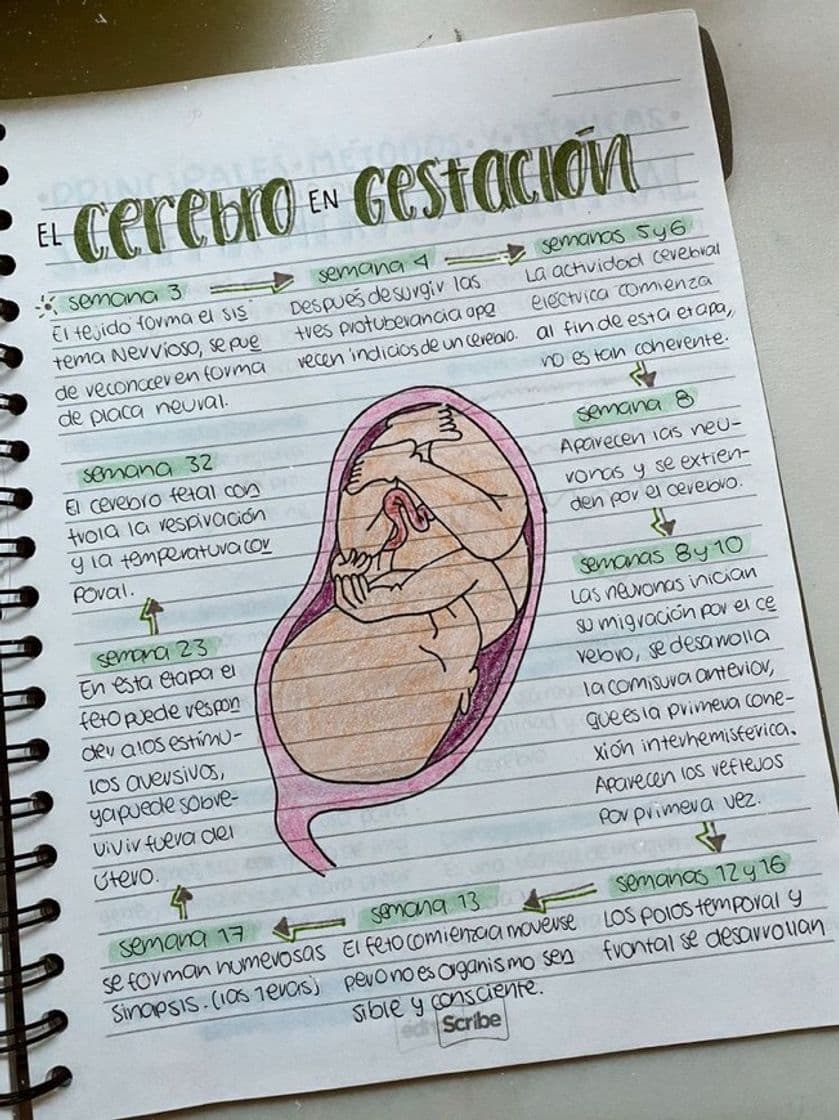 EL CEREBRO EN GESTACIÓN
semana 3
El tejido forma el sis
tema Nervioso, se pue
de reconocer en forma
de placa neural.
semana 4
Después de surgir las
tres protuberancia apa
recen indicios de un cerebro.
semanas 5 y 6
La actividad cerebral
eléctrica comienza
al fin de esta etapa,,
no es tan coherente.
semana 8
Aparecen las neu-
ronas y se extien-
den por el cerebro.
semanas 8 y 10
Las neuronas inician
su migración por el ce
rebro, se desarrolla
la comisura anterior,
que es la primera cone-
xión interhemisferica.
Aparecen los reflejos
por primera vez.
semanas 12 y 16
Los polos temporal y
frontal se desarrollan
semana 13
El feto comienza a moverse
pero no es organismo sen
sible y consciente.
semana 17
se forman numerosas
sinapsis. (las 1eras)
semana 23
En esta etapa el
feto puede respon
der a los estímu-
los aversivos,
ya puede sobre-
vivir fuera del
útero.
semana 32
El cerebro fetal con
trola la respiración
y la temperatura cor
poral.
Scribe